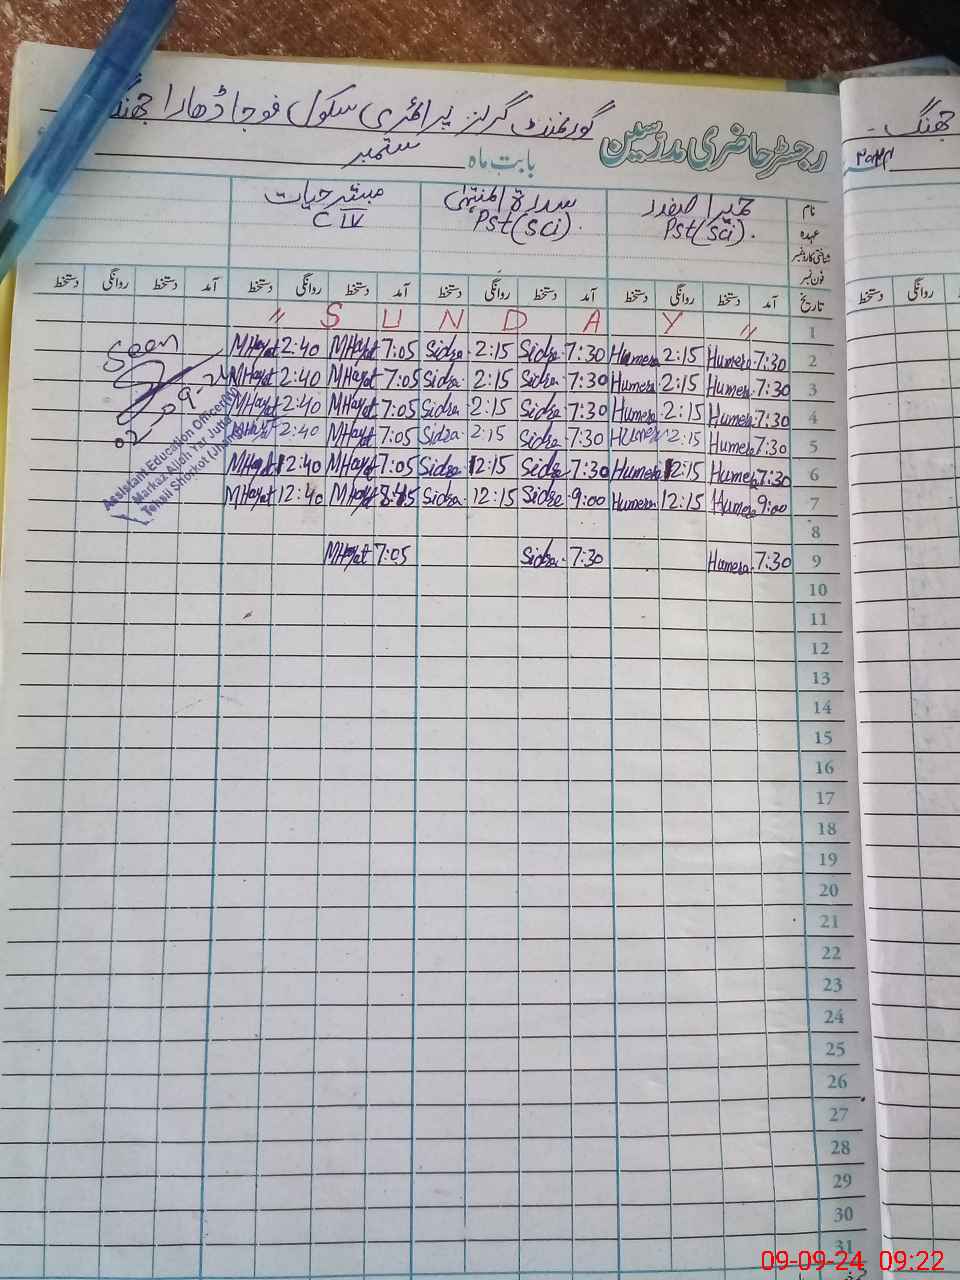 گورنمنٹ گرلز پرائمری سکول فوجا ڈھارا جھنگ
رجسٹر حاضری مدرسین
بابت ماہ ستمبر
نام حمیرا صفدر سدرۃ المنتہیٰ مبشر حیات
عہدہ Pst(Sci). Pst(Sci). C IV
شناختی کارڈ نمبر
فون نمبر
تاریخ آمد دستخط روانگی دستخط آمد دستخط روانگی دستخط آمد دستخط روانگی دستخط آمد دستخط روانگی دستخط
" S U N D A Y " 1
Seen MHayat 2:40 MHayat 7:05 Sidra 2:15 Sidra 7:30 Humera 2:15 Humera 7:30 2
MHayat 2:40 MHayat 7:05 Sidra 2:15 Sidra 7:30 Humera 2:15 Humera 7:30 3
MHayat 2:40 MHayat 7:05 Sidra 2:15 Sidra 7:30 Humera 2:15 Humera 7:30 4
MHayat 2:40 MHayat 7:05 Sidra 2:15 Sidra 7:30 Humera 2:15 Humera 7:30 5
MHayat 12:40 MHayat 7:05 Sidra 12:15 Sidra 7:30 Humera 12:15 Humera 7:30 6
MHayat 12:40 MHayat Sidra 12:15 Sidra 9:00 Humera 12:15 Humera 9:00 7
8
MHayat 7:05 Sidra 7:30 Humera 7:30 9
Assistant Education Officer
Markaz Allah Yar Juta
Tehsil Shorkot
10
11
12
13
14
15
16
17
18
19
20
21
22
23
24
25
26
27
28
29
30
31
جھنگ
دستخط روانگی
09-09-24 09:22